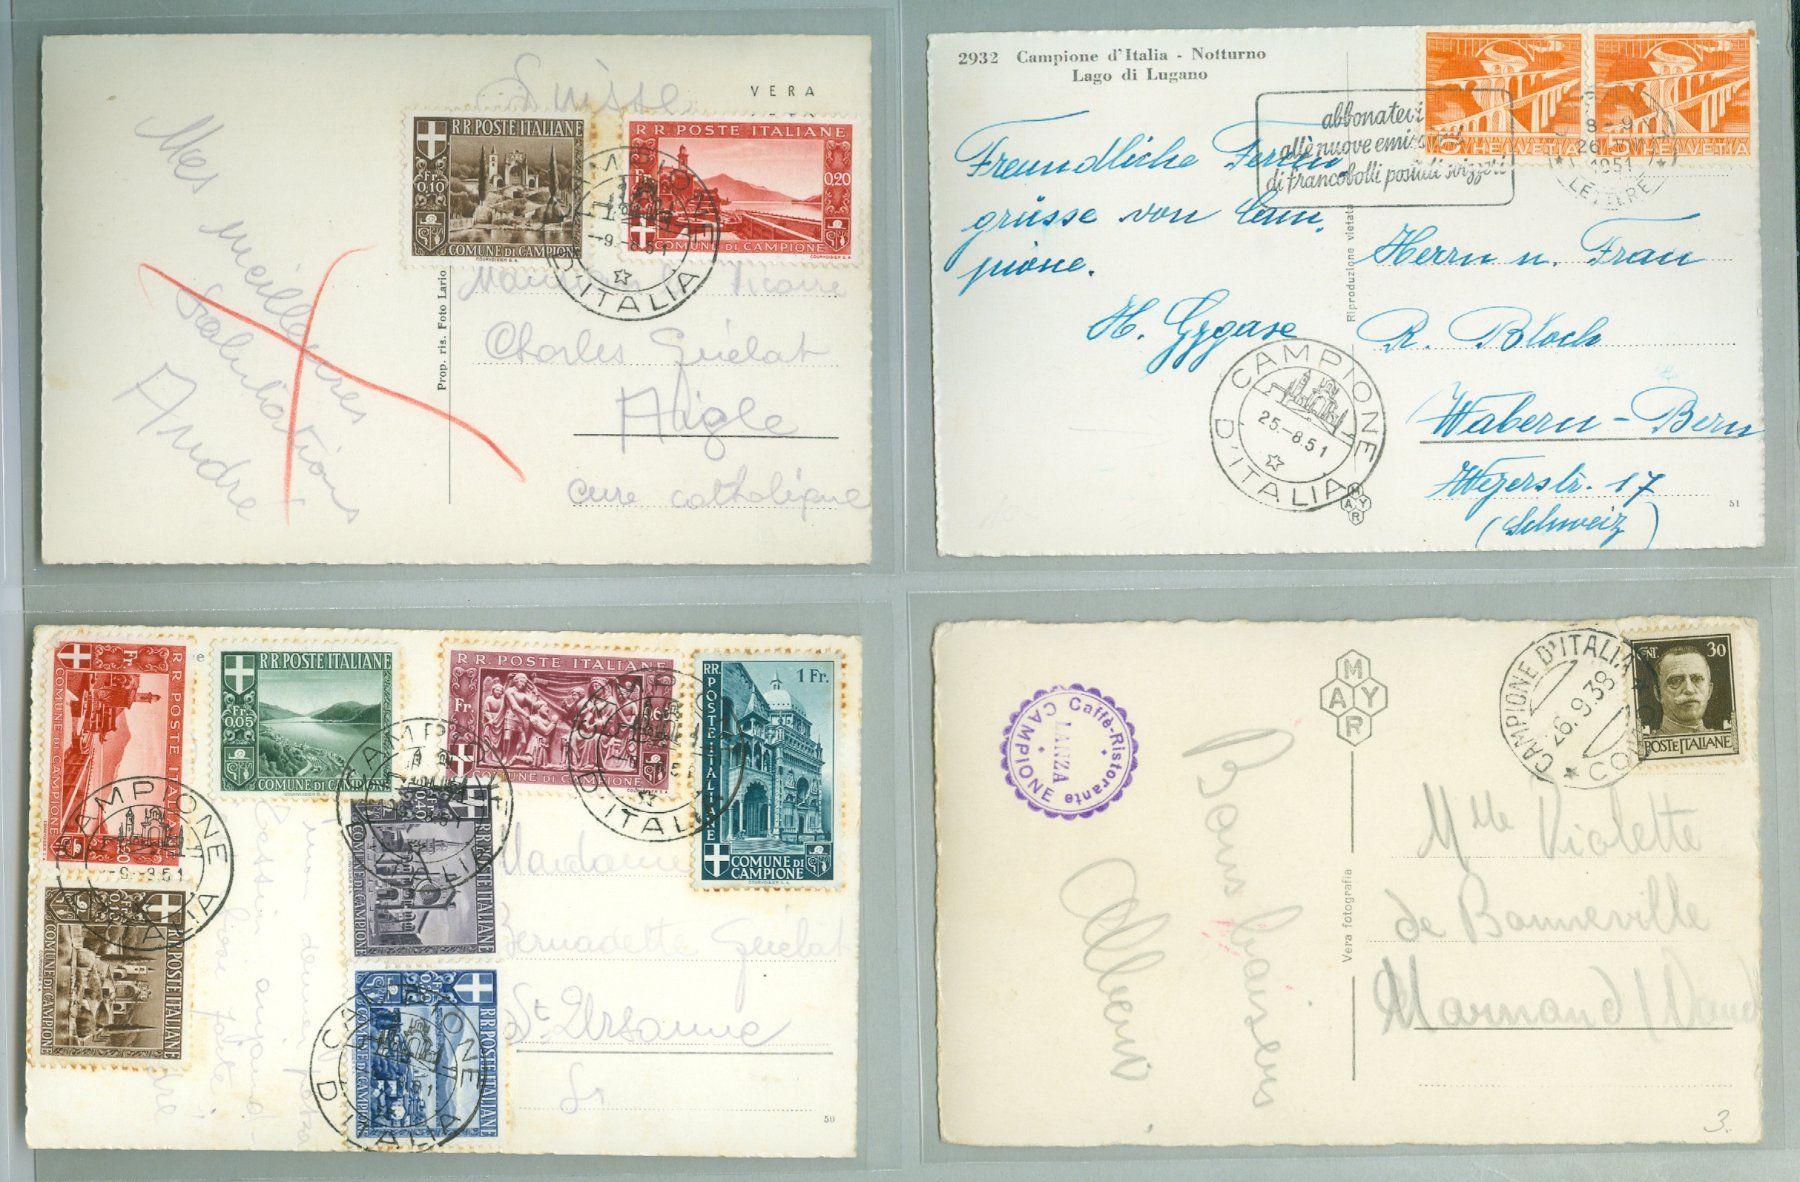 Suisse
VERA
R.R. POSTE ITALIANE
Fr. 0,10
COMUNE DI CAMPIONE
COURVOISIER S.A.
R.R. POSTE ITALIANE
Fr. 0,20
COMUNE DI CAMPIONE
COURVOISIER S.A.
CAMPIONE
-9.-8.51
D'ITALIA
Mes meilleures
Salutations
André
Prop. ris. Foto Lario
Vicaire
Charles Guélat
Aigle
cure catholique
2932 Campione d'Italia - Notturno
Lago di Lugano
abbonatevi
alle nuove emissioni
di francobolli postali svizzeri
5 HELVETIA
5 HELVETIA
8-9
26
1951
LETTERE
Freundliche Ferien-
grüsse von Cam-
pione.
H. Gygase
Riproduzione vietata
Herrn u. Frau
R. Bloch
Wabern - Bern
Weyerstr. 17
(Schweiz)
CAMPIONE
25.-8.51
D'ITALIA
MAYR
51
R.R. POSTE ITALIANE
Fr. 0,20
COMUNE DI CAMPIONE
R.R. POSTE ITALIANE
Fr. 0,05
COMUNE DI CAMPIONE
COURVOISIER S.A.
R.R. POSTE ITALIANE
Fr.
COMUNE DI CAMPIONE
R.R. POSTE ITALIANE
1 Fr.
COMUNE DI CAMPIONE
COURVOISIER S.A.
CAMPIONE
-9.-8.51
D'ITALIA
CAMPIONE
D'ITALIA
CAMPIONE
D'ITALIA
R.R. POSTE ITALIANE
COMUNE DI CAMPIONE
R.R. POSTE ITALIANE
Fr. 0,10
COMUNE DI CAMPIONE
R.R. POSTE ITALIANE
COMUNE DI CAMPIONE
CAMPIONE
D'ITALIA
mon dernier
Tessin
Madame
Bernadette Guélat
St. Ursanne
50
MAYR
Caffè-Ristorante
LANZA
CAMPIONE
Bons baisers
Vera fotografia
CAMPIONE D'ITALIA
26.9.38
COMO
CENT. 30
POSTE ITALIANE
Mlle Violette
de Bonneville
Marnand / Vaud
3.